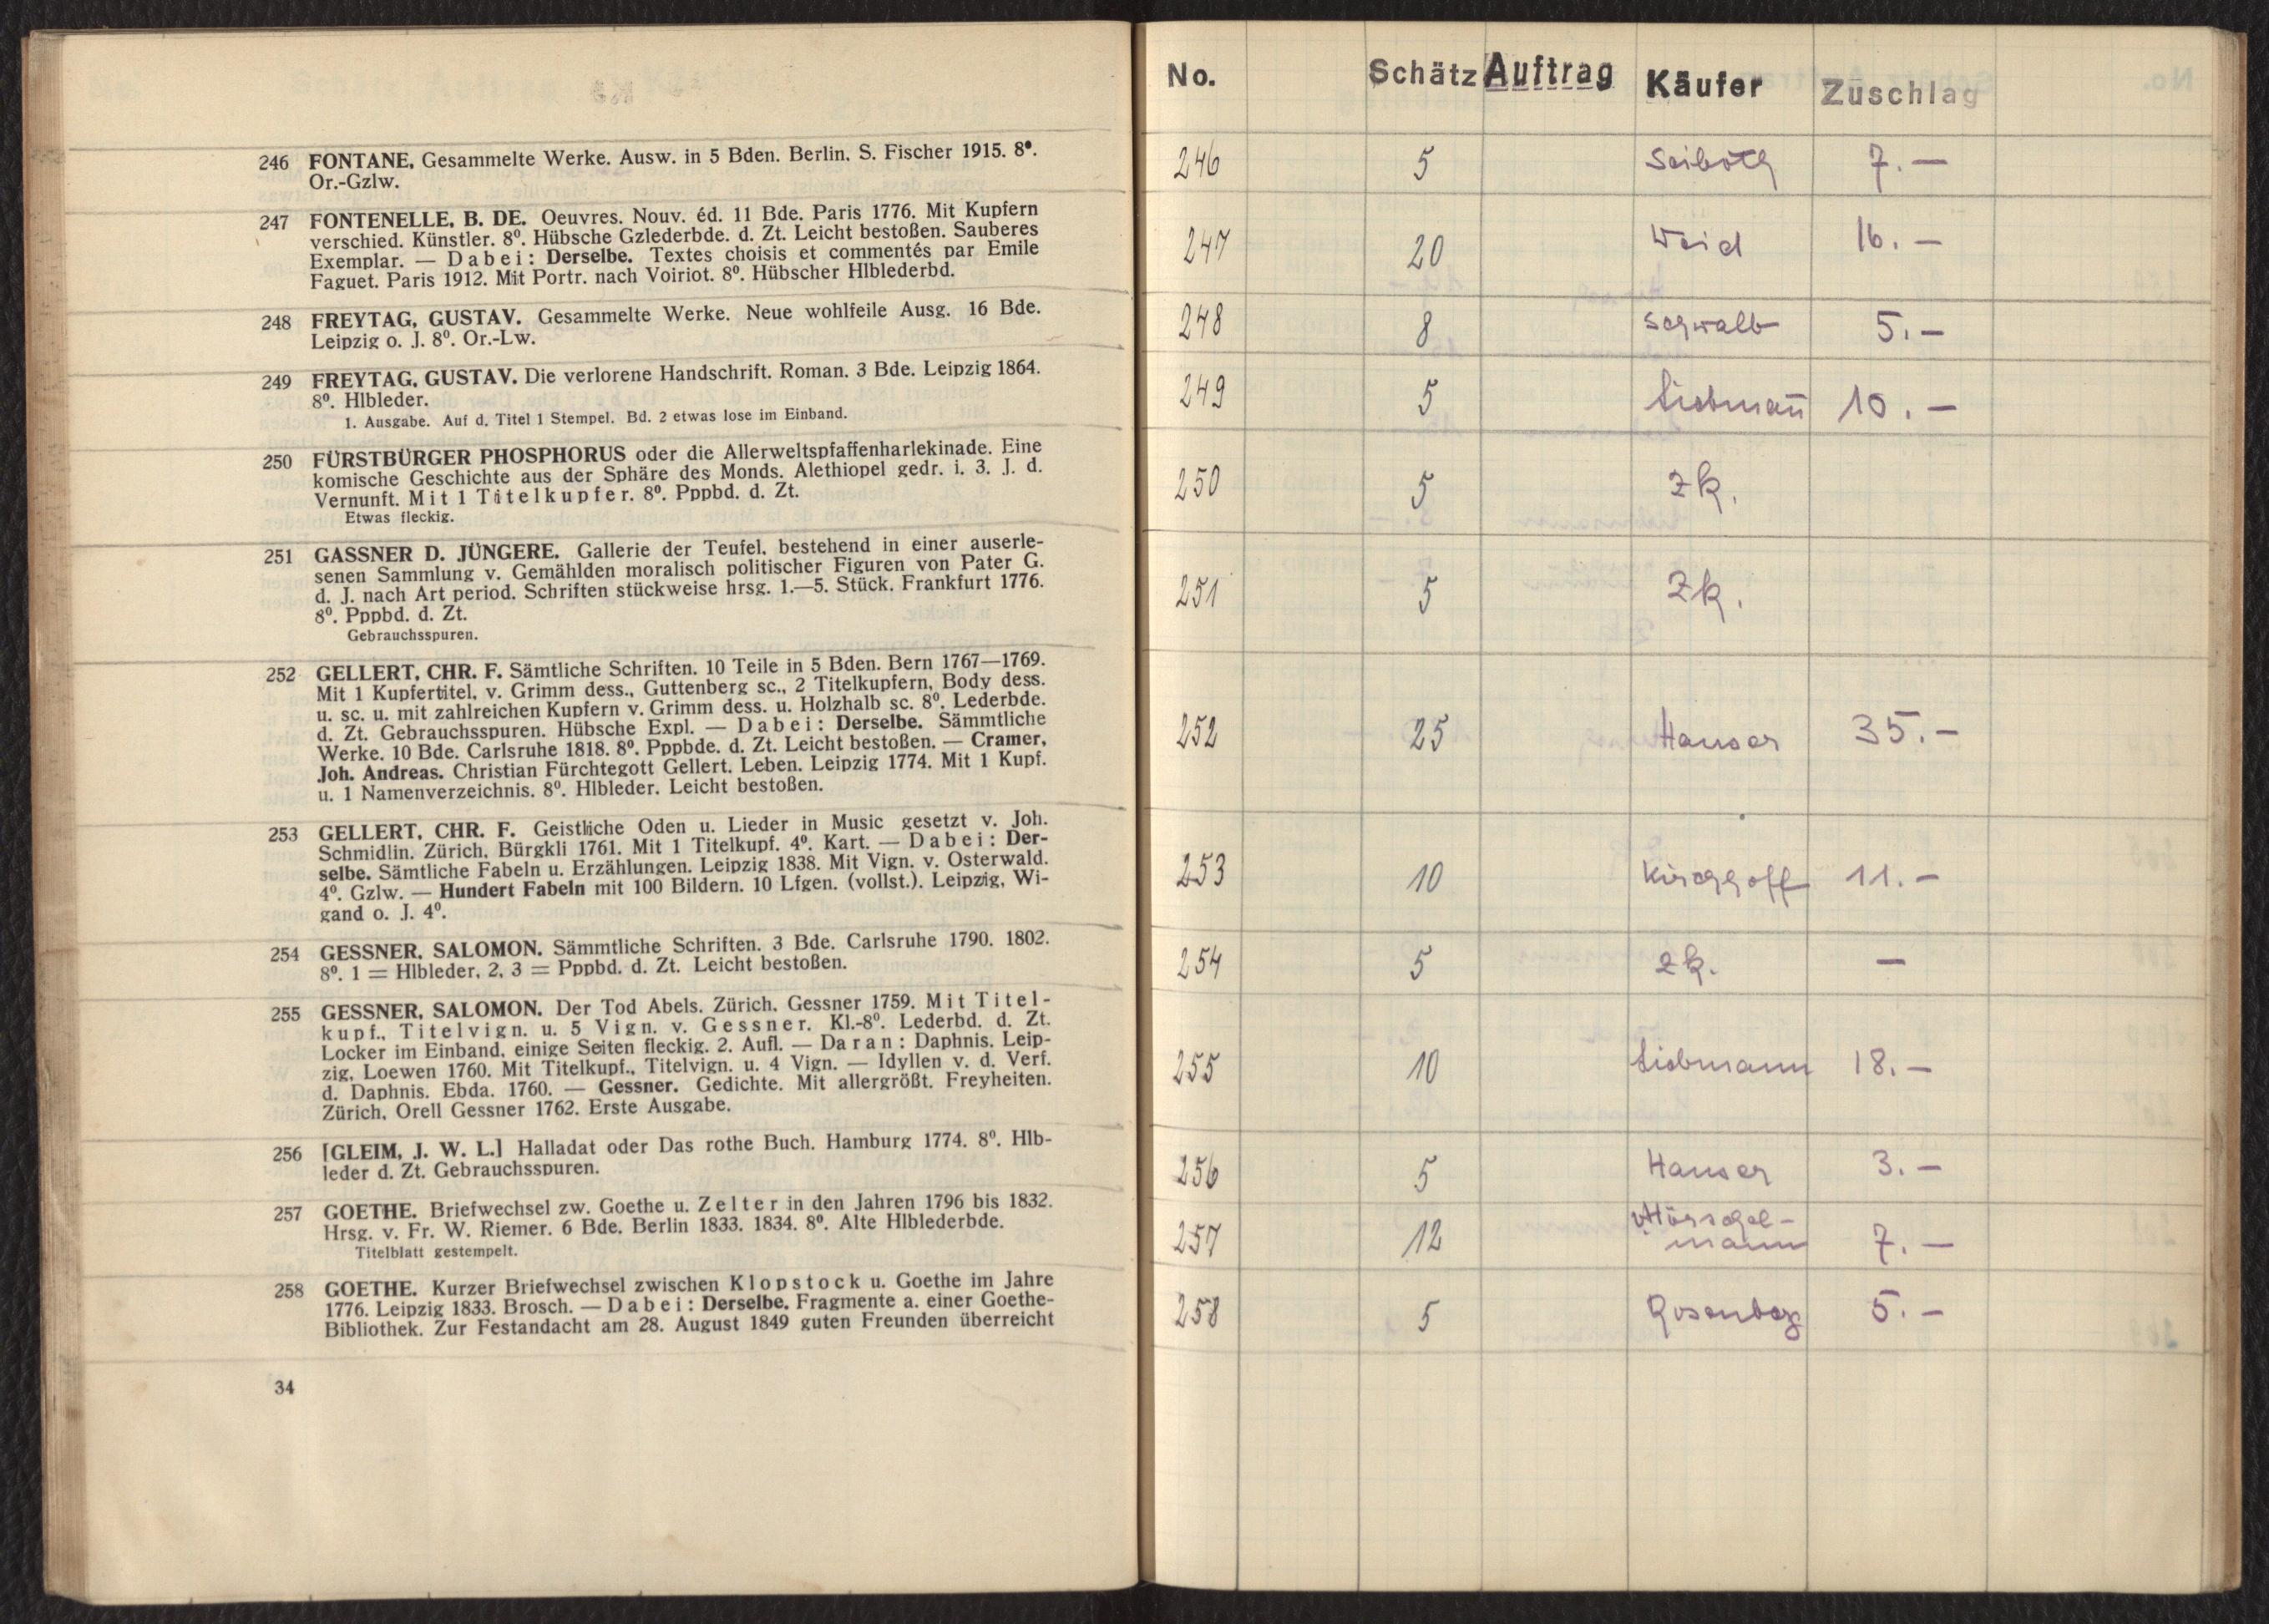 246 FONTANE, Gesammelte Werke. Ausw. in 5 Bden. Berlin, S. Fischer 1915. 8⁰.
Or.-Gzlw.
247 FONTENELLE, B. DE. Oeuvres. Nouv. éd. 11 Bde. Paris 1776. Mit Kupfern
verschied. Künstler. 8⁰. Hübsche Gzlederbde. d. Zt. Leicht bestoßen. Sauberes
Exemplar. — Dabei: Derselbe. Textes choisis et commentés par Emile
Faguet. Paris 1912. Mit Portr. nach Voiriot. 8⁰. Hübscher Hlblederbd.
248 FREYTAG, GUSTAV. Gesammelte Werke. Neue wohlfeile Ausg. 16 Bde.
Leipzig o. J. 8⁰. Or.-Lw.
249 FREYTAG, GUSTAV. Die verlorene Handschrift. Roman. 3 Bde. Leipzig 1864.
8⁰. Hlbleder.
1. Ausgabe. Auf d. Titel 1 Stempel. Bd. 2 etwas lose im Einband.
250 FÜRSTBÜRGER PHOSPHORUS oder die Allerweltspfaffenharlekinade. Eine
komische Geschichte aus der Sphäre des Monds. Alethiopel gedr. i. 3. J. d.
Vernunft. Mit 1 Titelkupfer. 8⁰. Pppbd. d. Zt.
Etwas fleckig.
251 GASSNER D. JÜNGERE. Gallerie der Teufel, bestehend in einer auserle-
senen Sammlung v. Gemählden moralisch politischer Figuren von Pater G.
d. J. nach Art period. Schriften stückweise hrsg. 1.—5. Stück. Frankfurt 1776.
8⁰. Pppbd. d. Zt.
Gebrauchsspuren.
252 GELLERT, CHR. F. Sämtliche Schriften. 10 Teile in 5 Bden. Bern 1767—1769.
Mit 1 Kupfertitel, v. Grimm dess., Guttenberg sc., 2 Titelkupfern, Body dess.
u. sc. u. mit zahlreichen Kupfern v. Grimm dess. u. Holzhalb sc. 8⁰. Lederbde.
d. Zt. Gebrauchsspuren. Hübsche Expl. — Dabei: Derselbe. Sämmtliche
Werke. 10 Bde. Carlsruhe 1818. 8⁰. Pppbde. d. Zt. Leicht bestoßen. — Cramer,
Joh. Andreas. Christian Fürchtegott Gellert. Leben. Leipzig 1774. Mit 1 Kupf.
u. 1 Namenverzeichnis. 8⁰. Hlbleder. Leicht bestoßen.
253 GELLERT, CHR. F. Geistliche Oden u. Lieder in Music gesetzt v. Joh.
Schmidlin. Zürich, Bürgkli 1761. Mit 1 Titelkupf. 4⁰. Kart. — Dabei: Der-
selbe. Sämtliche Fabeln u. Erzählungen. Leipzig 1838. Mit Vign. v. Osterwald.
4⁰. Gzlw. — Hundert Fabeln mit 100 Bildern. 10 Lfgen. (vollst.). Leipzig, Wi-
gand o. J. 4⁰.
254 GESSNER, SALOMON. Sämmtliche Schriften. 3 Bde. Carlsruhe 1790. 1802.
8⁰. 1 = Hlbleder, 2, 3 = Pppbd. d. Zt. Leicht bestoßen.
255 GESSNER, SALOMON. Der Tod Abels. Zürich, Gessner 1759. Mit Titel-
kupf., Titelvign. u. 5 Vign. v. Gessner. Kl.-8⁰. Lederbd. d. Zt.
Locker im Einband, einige Seiten fleckig. 2. Aufl. — Daran: Daphnis. Leip-
zig, Loewen 1760. Mit Titelkupf., Titelvign. u. 4 Vign. — Idyllen v. d. Verf.
d. Daphnis. Ebda. 1760. — Gessner. Gedichte. Mit allergrößt. Freyheiten.
Zürich, Orell Gessner 1762. Erste Ausgabe.
256 [GLEIM, J. W. L.] Halladat oder Das rothe Buch. Hamburg 1774. 8⁰. Hlb-
leder d. Zt. Gebrauchsspuren.
257 GOETHE. Briefwechsel zw. Goethe u. Zelter in den Jahren 1796 bis 1832.
Hrsg. v. Fr. W. Riemer. 6 Bde. Berlin 1833. 1834. 8⁰. Alte Hlblederbde.
Titelblatt gestempelt.
258 GOETHE. Kurzer Briefwechsel zwischen Klopstock u. Goethe im Jahre
1776. Leipzig 1833. Brosch. — Dabei: Derselbe. Fragmente a. einer Goethe-
Bibliothek. Zur Festandacht am 28. August 1849 guten Freunden überreicht
34
No. Schätz Auftrag Käufer Zuschlag
246 5 Seiboth 7.—
247 20 Weid 16.—
248 8 Schwalb 5.—
249 5 Liebmañ 10.—
250 5 zk.
251 5 zk.
252 25 Hauser 35.—
253 10 Kirchhoff 11.—
254 5 zk. —
255 10 Liebmann 18.—
256 5 Hauser 3.—
257 12 v. Hörschel-
mann 7.—
258 5 Rosenberg 5.—